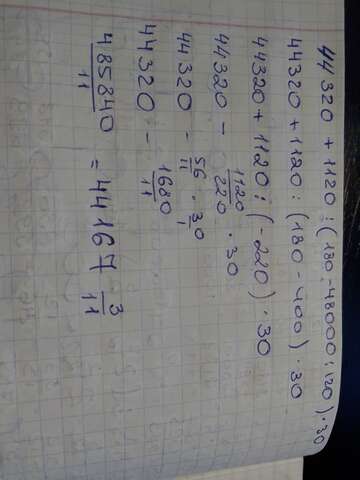 44320 + 1120 : (180 - 48000 : 120) · 30
44320 + 1120 : (180 - 400) · 30
44320 + 1120 : (-220) · 30
44320 - 1120/220 · 30
44320 - 56/11 · 30/1
44320 - 1680/11
485840/11 = 44167 3/11